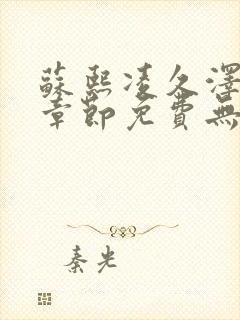 蘇熙凌久澤
章節免費無
秦光